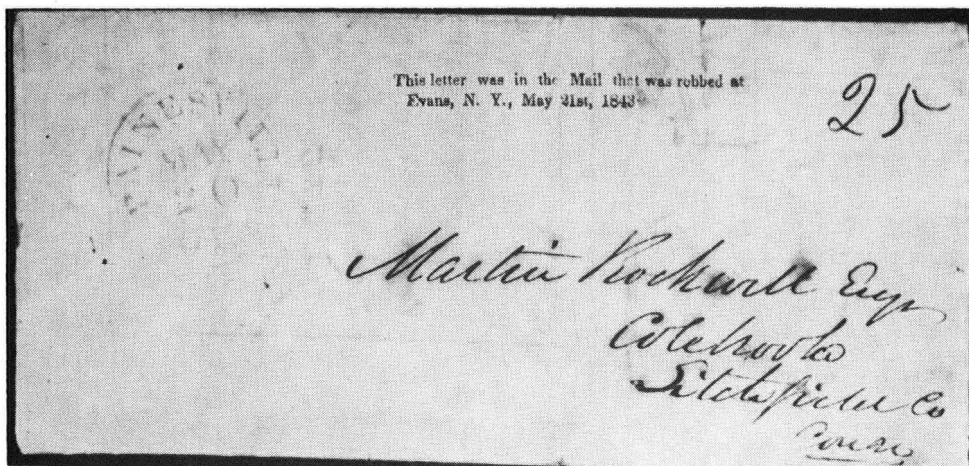 This letter was in the Mail that was robbed at
Evans, N. Y., May 21st, 1843
25
Martin Rockwell Esqr
Colebrook
Litchfield Co
Conn,